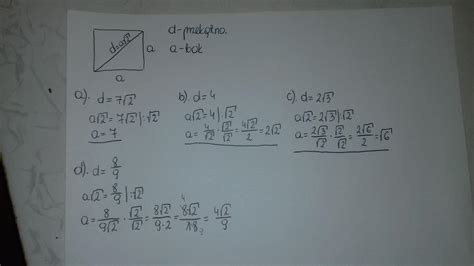 d=a√2
a
a
d-przekątna.
a-bok
a). d=7√2
a√2 = 7√2 |:√2
a=7
b). d=4
a√2=4 |:√2
a=4/√2 · √2/√2 = 4√2/2 = 2√2
c). d=2√3
a√2=2√3 |:√2
a=2√3/√2 · √2/√2 = 2√6/2 = √6
d). d=8/9
a√2=8/9 |:√2
a=8/9√2 · √2/√2 = 8√2/9·2 = 8√2/18 = 4√2/9